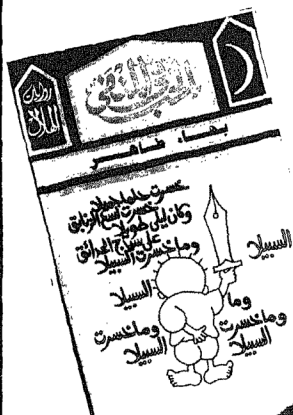 روايات
الهلال
الحب في المنفى
بهاء طاهر
خسرت حلما جميلا
خسرت لسع الزنابق
وكان ليلي طويلا
على سياج الحدائق
وما خسرت السبيلا
السبيلا
السبيلا
وما
وما خسرت
خسرت
السبيلا
السبيلا